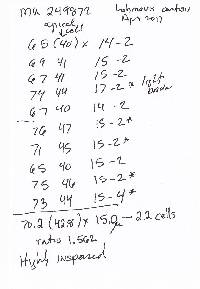 MK 249872
Apr 2017
apical cell
65 (40) x 14-2
69 41 15-2
67 41 15-2
74 44 17-2*
67 40 14-2
76 47 15-2*
71 45 15-2*
65 40 15-2
75 46 15-2*
73 44 15-4*
70.2 (42.8) x 15.0 — 2.2 cells
ratio 1.562
Highly inspersed